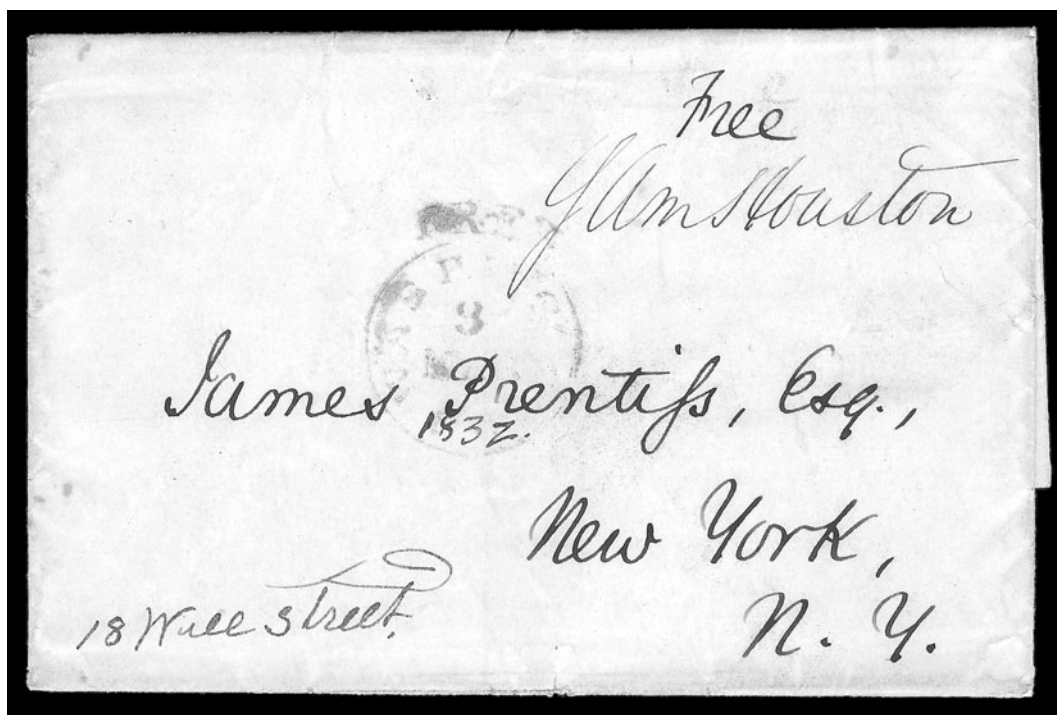 Free
Sam Houston
3
James Prentiſs, Esq.,
1832.
New York,
18 Wall Street,
N. Y.